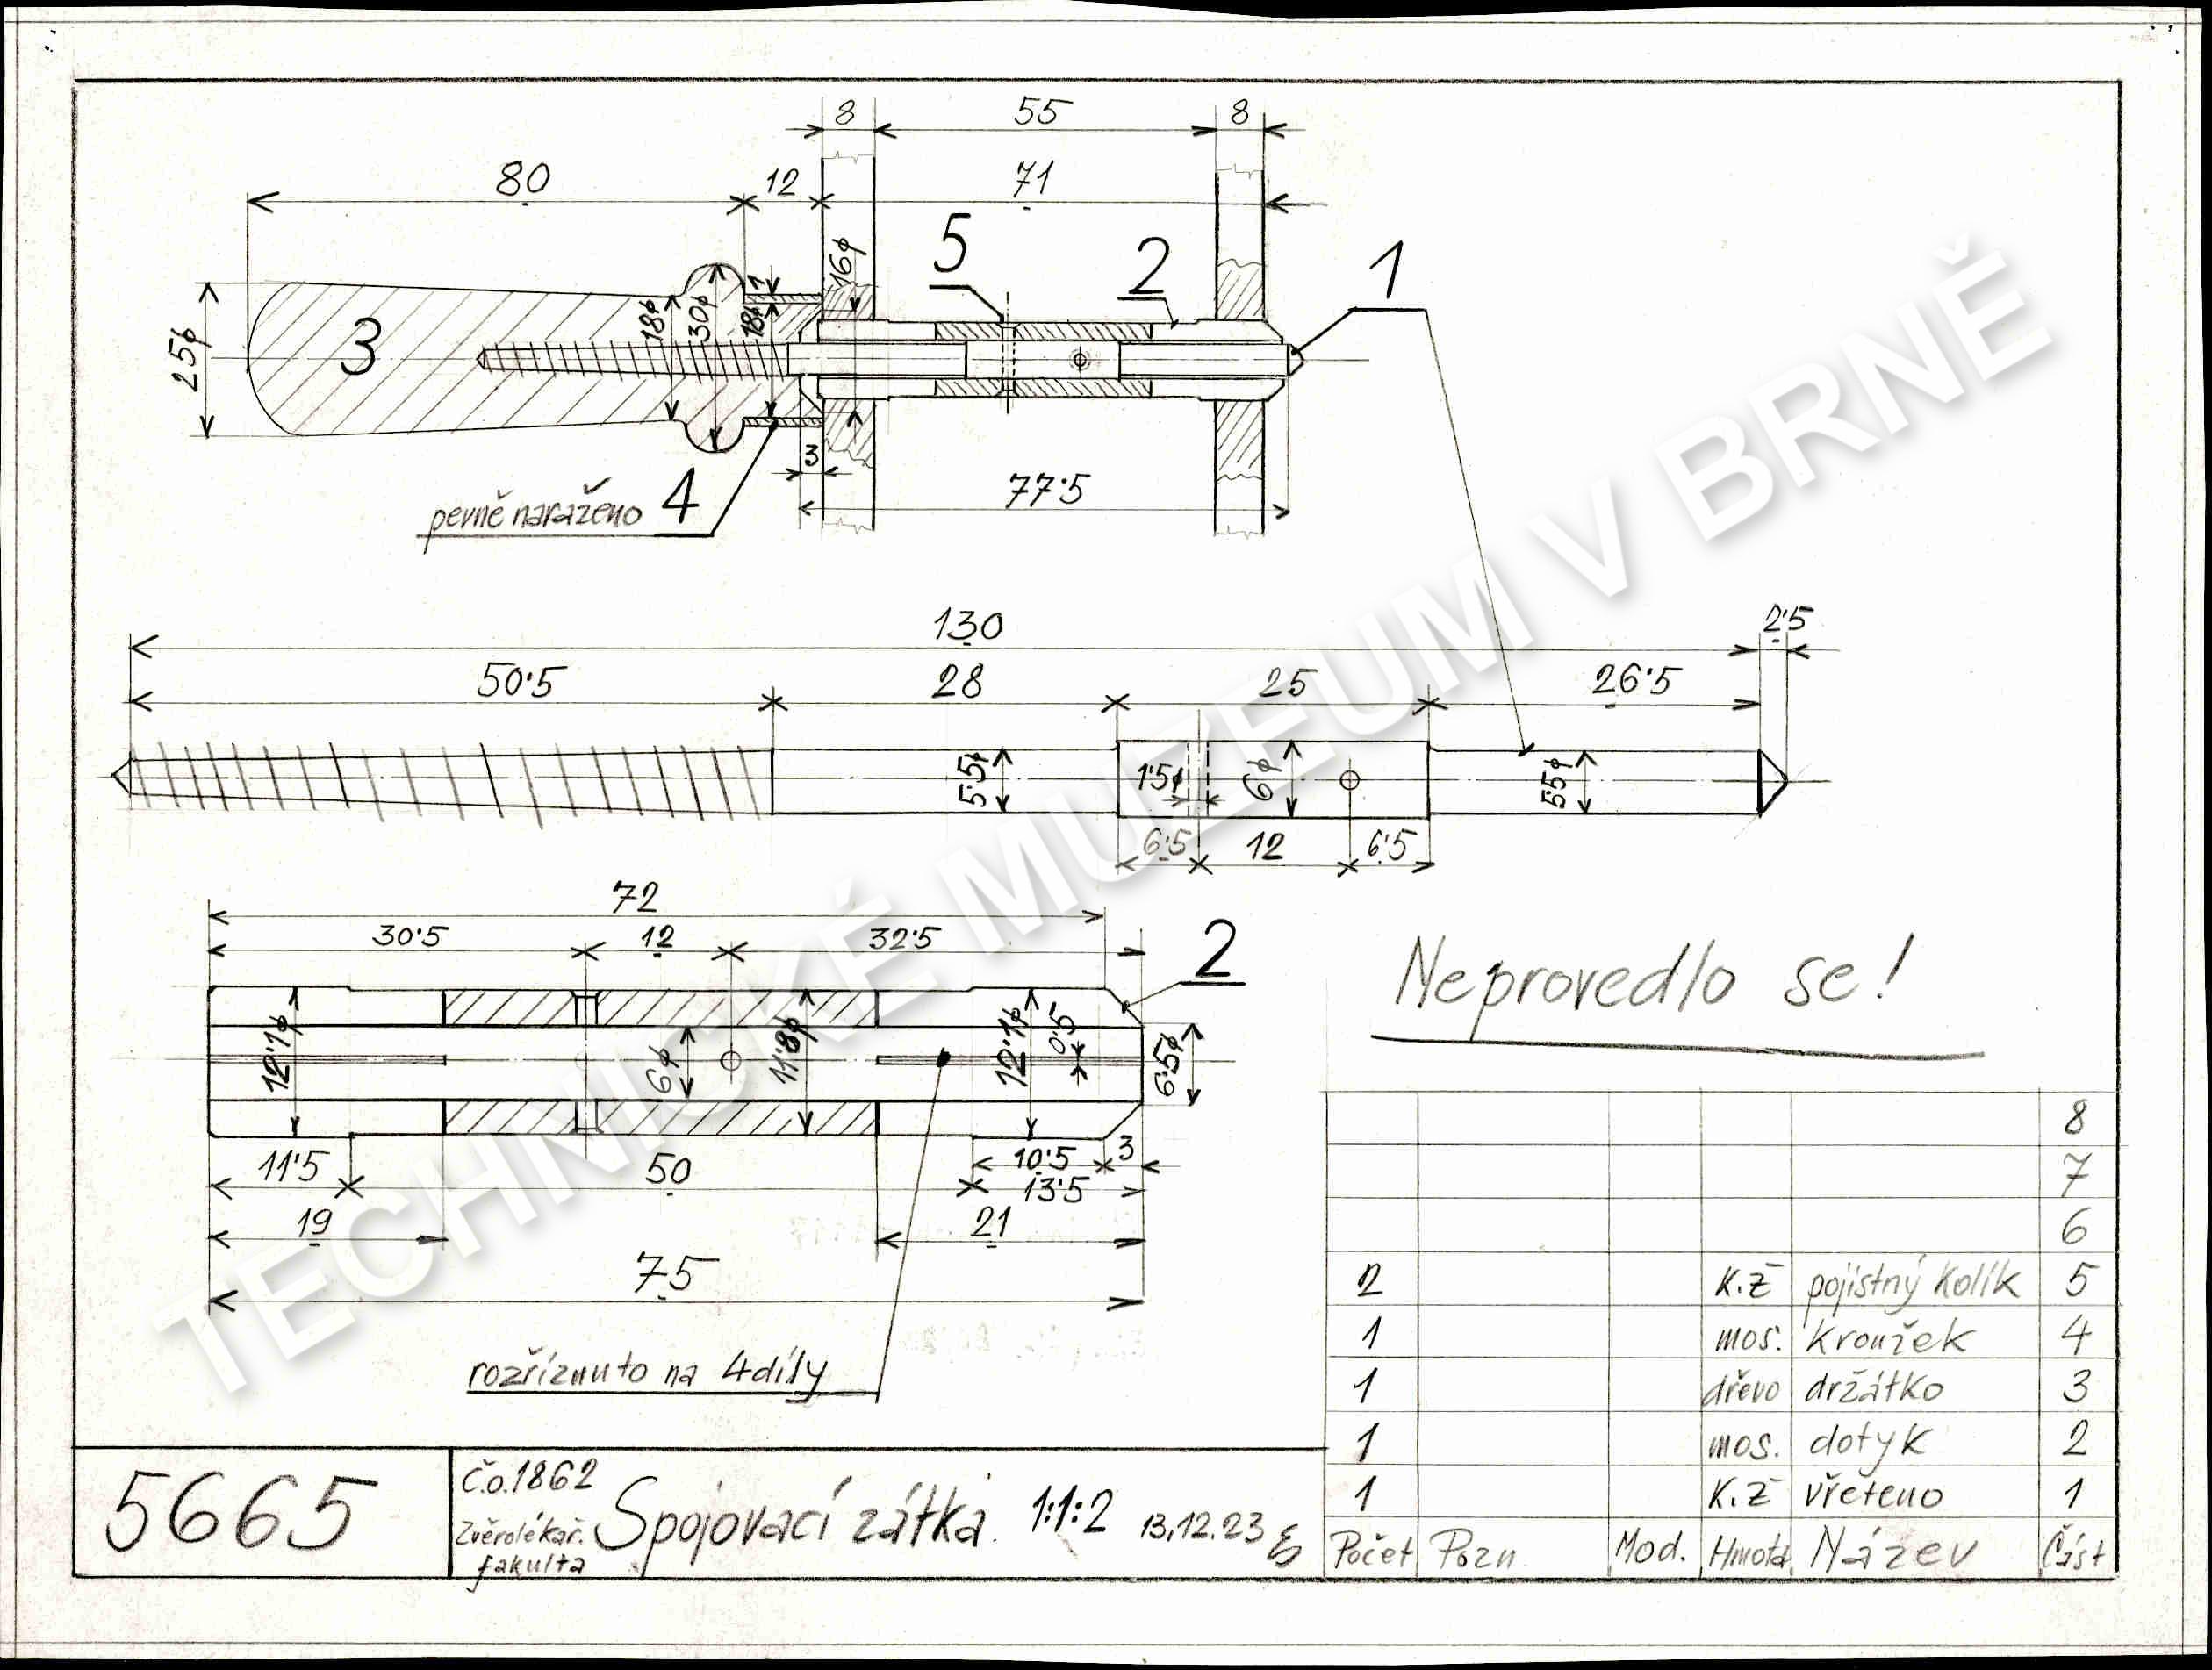 8 55 8
80 12 71
5 2 1
16ϕ
1
25ϕ 3 18ϕ 30ϕ 18ϕ
3
77·5
pevně naraženo 4
130 2·5
50·5 28 25 26·5
5·5ϕ 1·5ϕ 6ϕ 5·5ϕ
6·5 12 6·5
72
30·5 12 32·5 2
12·1ϕ 6ϕ 11·8ϕ 12·1ϕ 0·5 6·5ϕ
11·5 50 10·5 3
13·5
19 21
75
rozříznuto na 4 díly
Neprovedlo se!
8
7
6
2 K.Ž pojistný kolík 5
1 mos. kroužek 4
1 dřevo držátko 3
1 mos. dotyk 2
1 K.Ž vřeteno 1
Počet Pozn Mod. Hmota Název Část
5665
Č.o.1862
Zvěrolékař. fakulta
Spojovací zátka. 1:1:2 13.12.23
TECHNICKÉ MUZEUM V BRNĚ